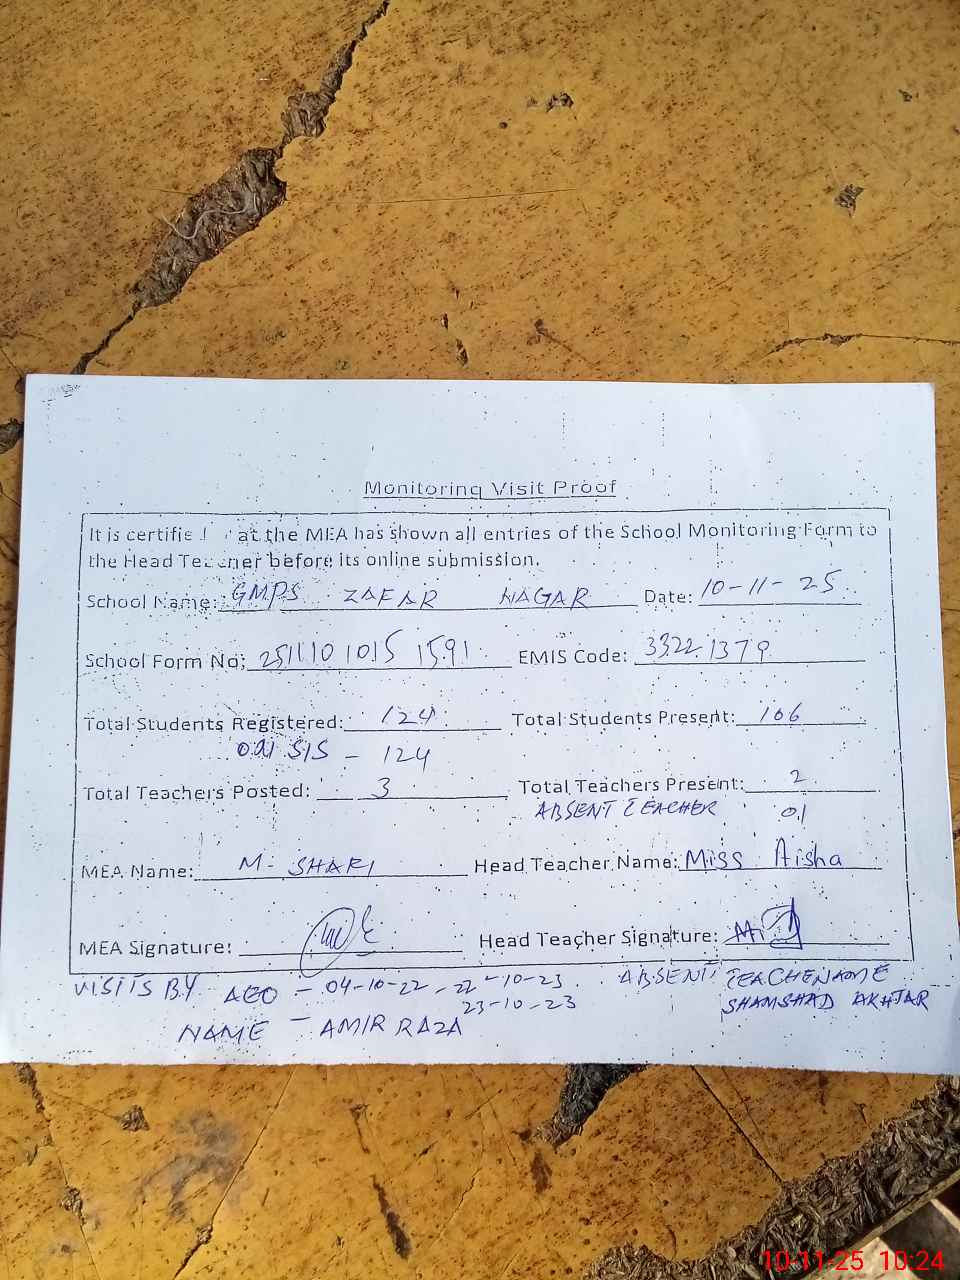 Monitoring Visit Proof
It is certified that the MEA has shown all entries of the School Monitoring Form to
the Head Teacher before its online submission.
School Name: GMPS ZAFAR NAGAR Date: 10-11-25
School Form No: 251110 1015 1591 EMIS Code: 33221379
Total Students Registered: 124 Total Students Present: 106
SIS - 124
Total Teachers Posted: 3 Total Teachers Present: 2
ABSENT TEACHER 01
MEA Name: M- SHARI Head Teacher Name: Miss Aisha
MEA Signature: Head Teacher Signature:
VISITS BY AEO - 04-10-22, 22-10-23 ABSENT TEACHENAME
23-10-23 SHAMSHAD AKHTAR
NAME - AMIR RAZA
10-11-25 10:24